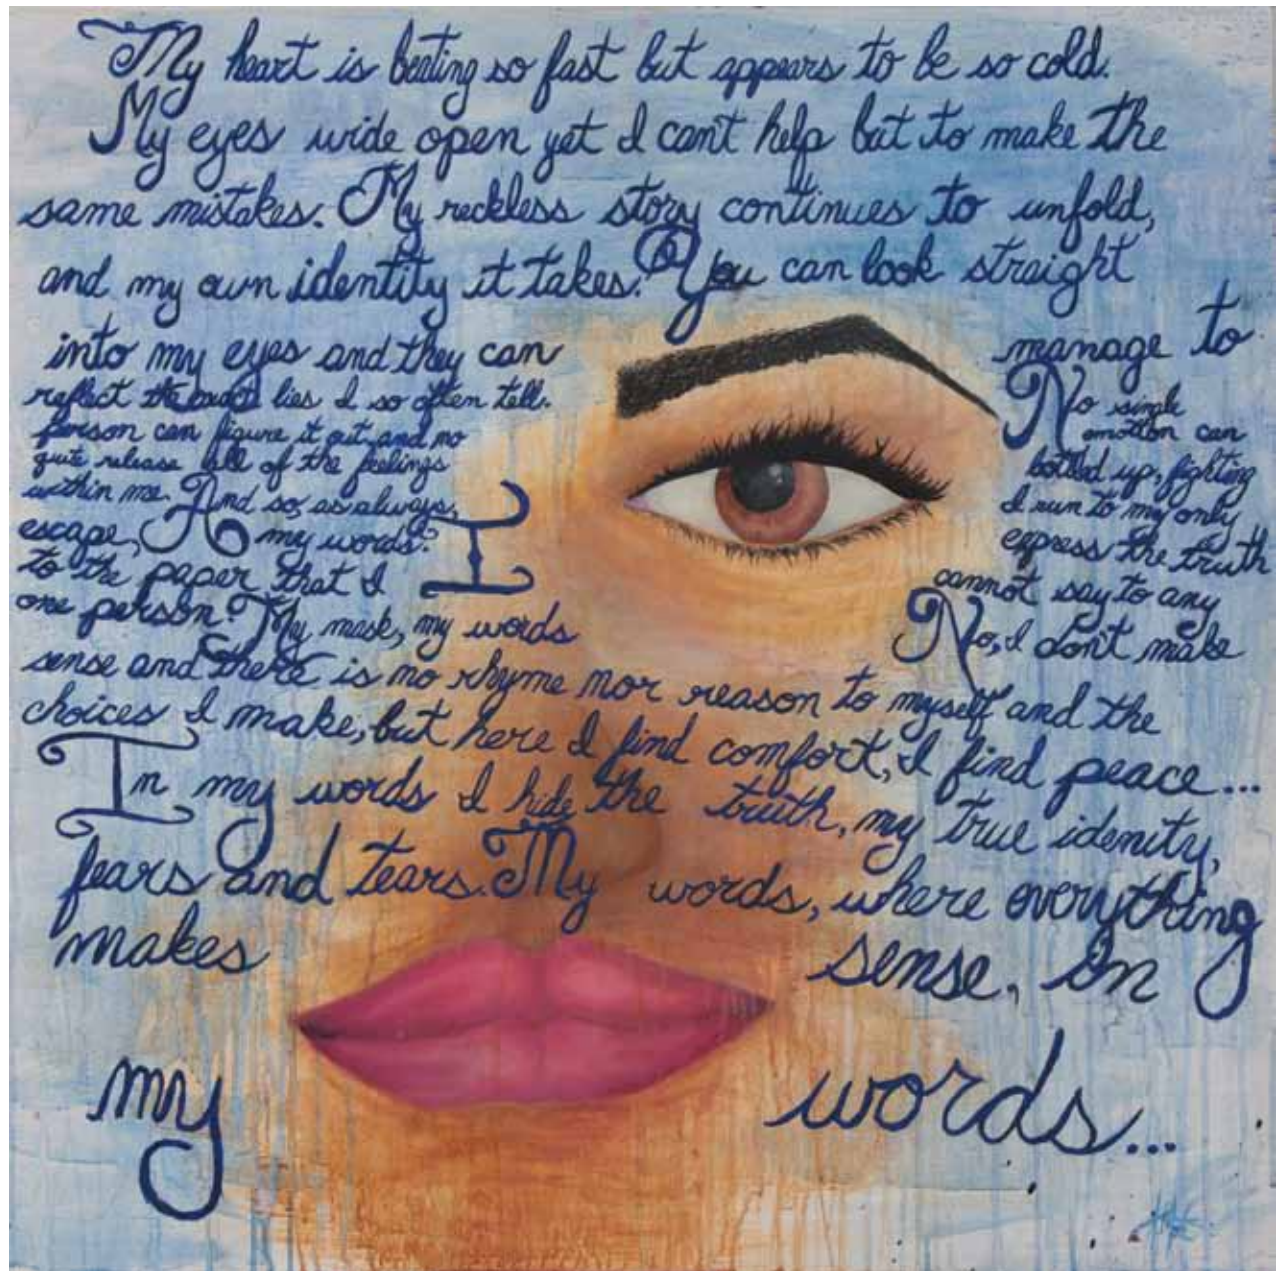 My heart is beating so fast but appears to be so cold.
My eyes wide open yet I can't help but to make the
same mistakes. My reckless story continues to unfold,
and my own identity it takes. You can look straight
into my eyes and they can manage to
reflect the lies I so often tell. No single
person can figure it out and no emotion can
quite release all of the feelings bottled up, fighting
within me. And so, as always, I run to my only
escape, my words. I express the truth
to the paper that I cannot say to any
one person. My mask, my words No, I don't make
sense and there is no rhyme nor reason to myself and the
choices I make, but here I find comfort, I find peace...
In my words I hide the truth, my true idenity,
fears and tears. My words, where everything
makes sense. In
my words...